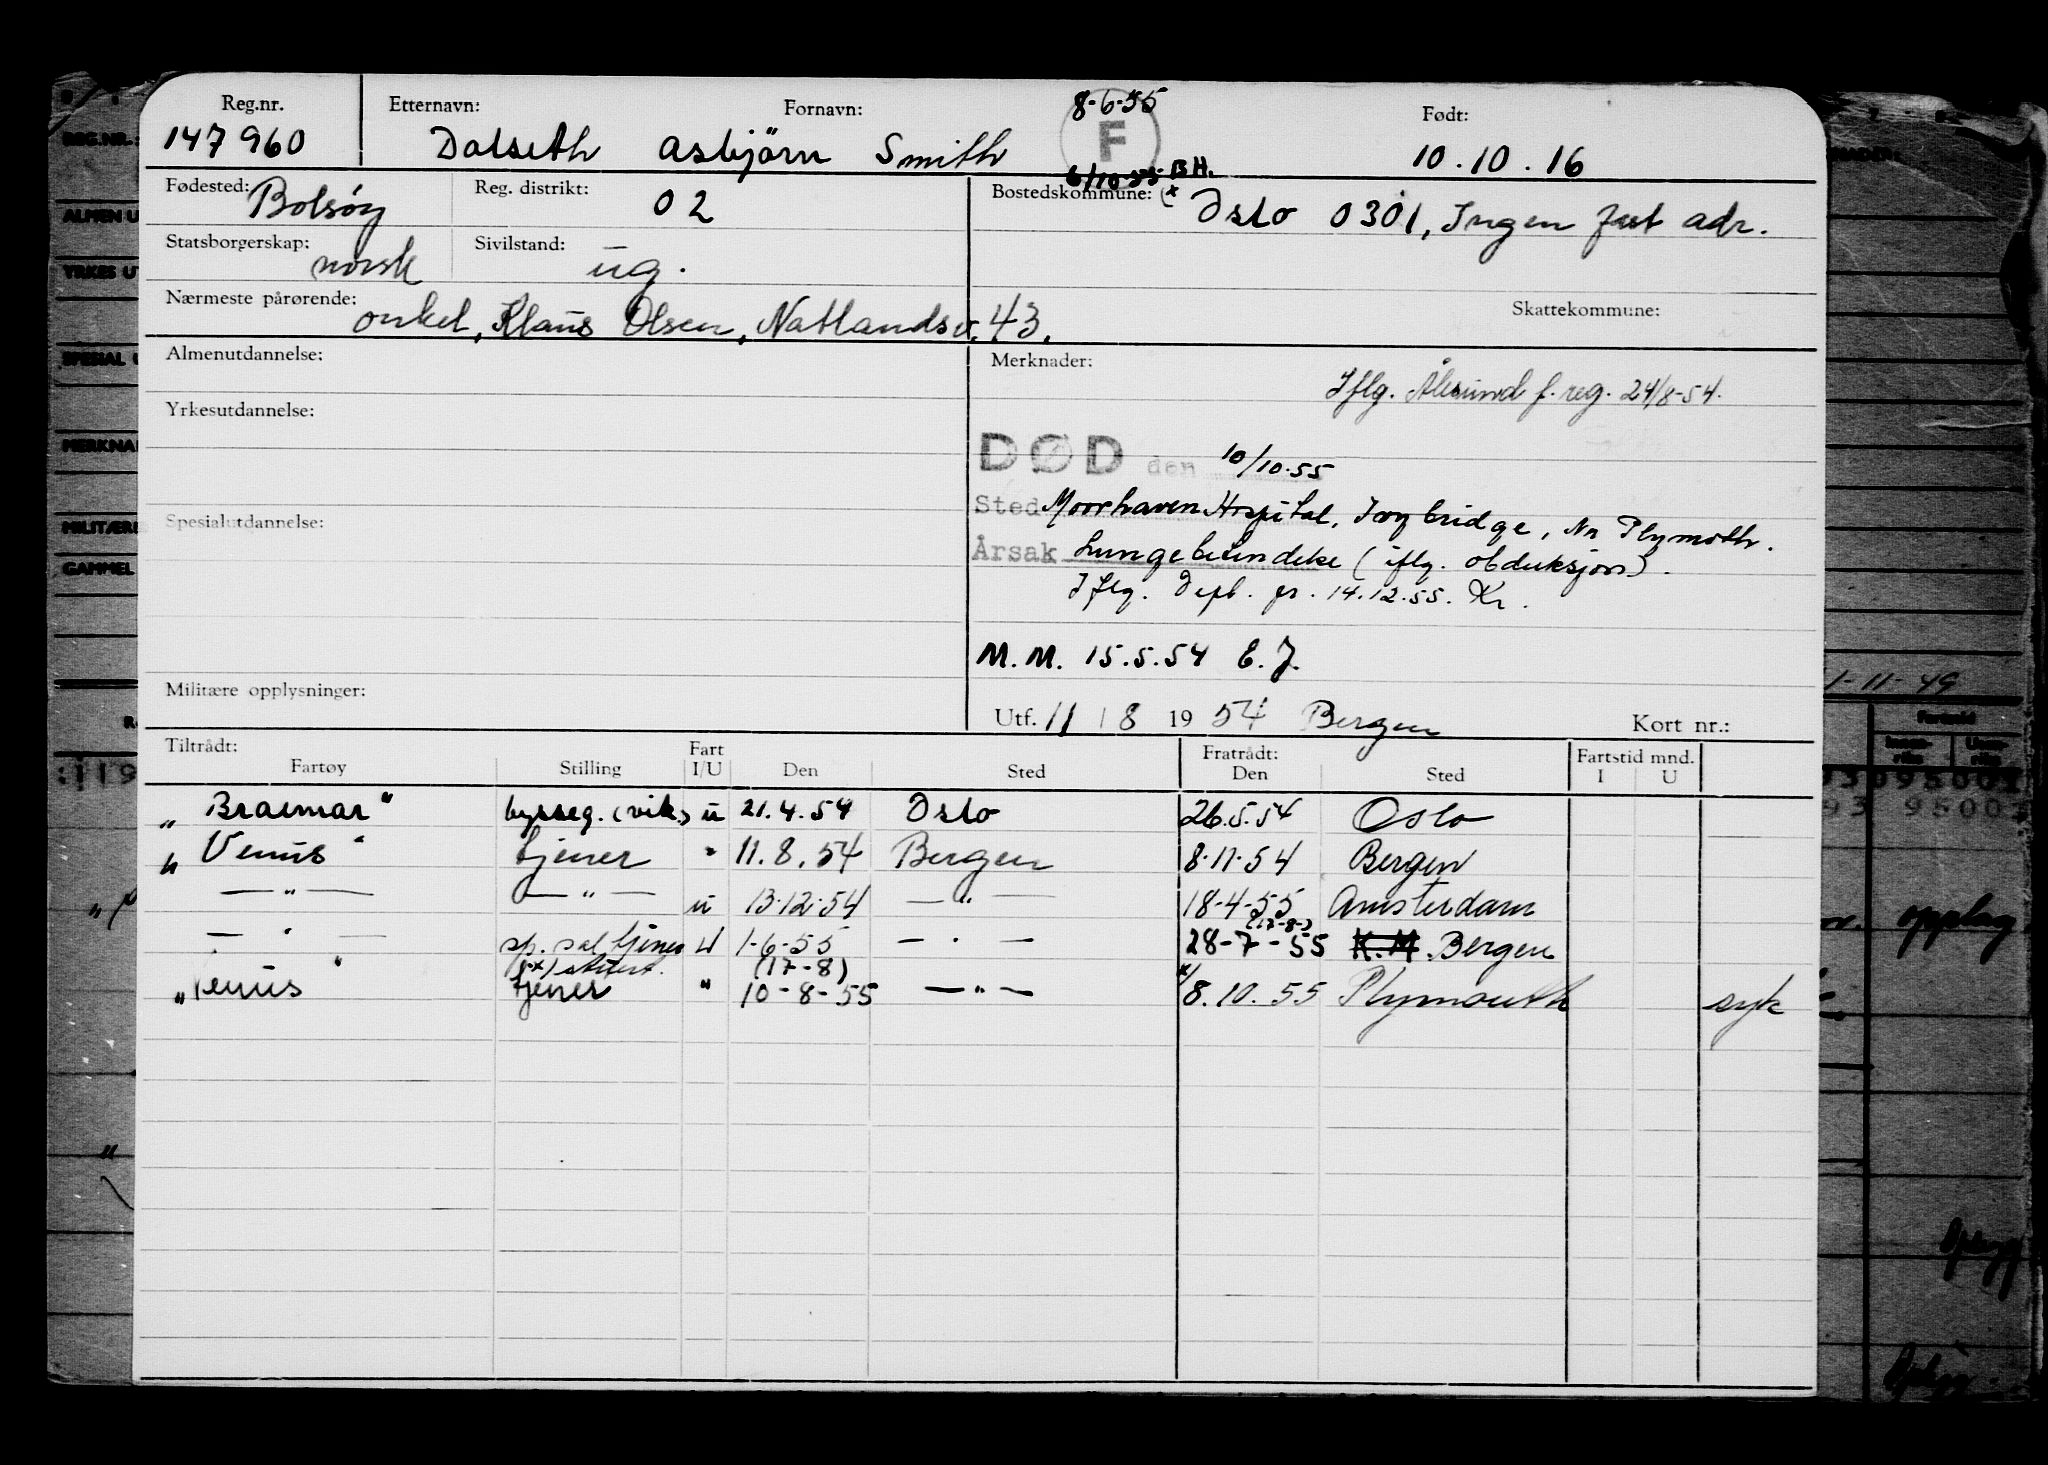 Reg.nr. Etternavn: Fornavn: 8-6-55 Født:
147960 Dalseth Asbjörn Smith F 10.10.16
6/10-55 BH.
Fødested: Bolsöy Reg. distrikt: 02 Bostedskommune: (x Oslo 0301, Ingen fast adr.
Statsborgerskap: norsk Sivilstand: ug.
Nærmeste pårørende: onkel, Klaus Olsen, Natlandsv. 43. Skattekommune:
Almenutdannelse: Merknader:
Iflg. Ålesund f. reg. 24/8-54.
Yrkesutdannelse:
DØD den 10/10-55
Sted Moorhaven Hospital, Ivybridge, Nr Plymoth.
Spesialutdannelse:
Årsak Lungebetendelse (iflg. obduksjon).
Iflg. Dept. pr. 14.12.55. Kr.
M.M. 15.5.54 E.J.
Militære opplysninger:
Utf. 11/8 1954 Bergen Kort nr.:
Tiltrådt: Fart Fratrådt: Fartstid mnd.
Fartøy Stilling I/U Den Sted Den Sted I U
"Braemar" bysseg. (vik.) u 21.4.54 Oslo 26.5.54 Oslo
"Venus" tjener " 11.8.54 Bergen 8-11-54 Bergen
— " — — " — u 13-12-54 — " — 18-4-55 Amsterdam
(17-8-)
— " — sp. sal tjener U 1-6-55 — " — 28-7-55 K.M. Bergen
(17-8)
"Venus" tjener " 10-8-55 — " — x/8.10.55 Plymouth syk
1-11-49